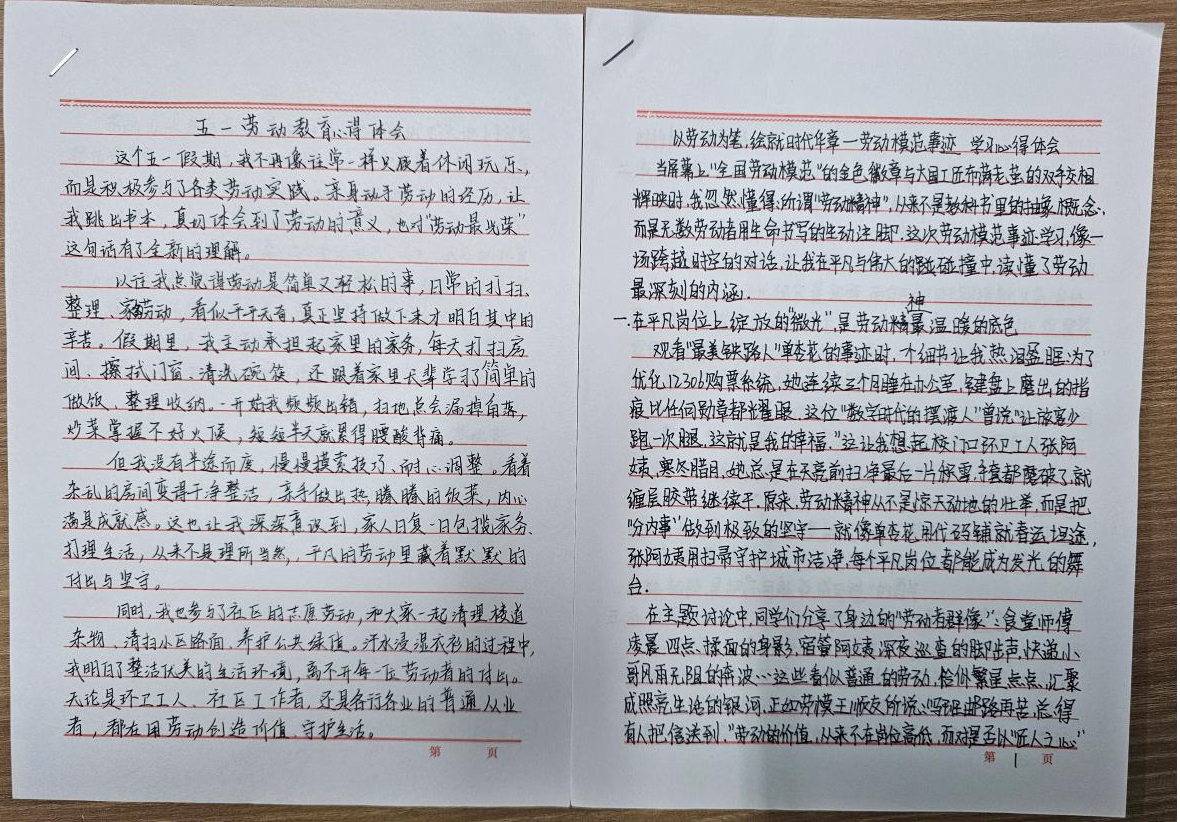 五一劳动教育心得体会
这个五一假期，我不再像往常一样只顾着休闲玩乐，
而是积极参与了各类劳动实践。亲身动手劳动的经历，让
我跳出书本，真切体会到了劳动的意义，也对“劳动最光荣”
这句话有了全新的理解。
以往我总觉得劳动是简单又轻松的事，日常的打扫、
整理、家务劳动，看似平平无奇，真正坚持做下来才明白其中的
辛苦。假期里，我主动承担起家里的家务，每天打扫房
间、擦拭门窗、清洗碗筷，还跟着家里长辈学习了简单的
做饭、整理收纳。一开始我频频出错，扫地总会漏掉角落，
炒菜掌握不好火候，短短半天就累得腰酸背痛。
但我没有半途而废，慢慢摸索技巧、耐心调整。看着
杂乱的房间变得干净整洁，亲手做出热腾腾的饭菜，内心
满是成就感。这也让我深深意识到，家人日复一日包揽家务、
打理生活，从来不是理所当然，平凡的劳动里藏着默默的
付出与坚守。
同时，我也参与了社区的志愿劳动，和大家一起清理楼道
杂物、清扫小区路面、养护公共绿植。汗水浸湿衣衫的过程中，
我明白了整洁优美的生活环境，离不开每一位劳动者的付出。
无论是环卫工人、社区工作者，还是各行各业的普通从业
者，都在用劳动创造价值、守护生活。
第 页
以劳动为笔，绘就时代华章一劳动模范事迹 学习心得体会
当屏幕上“全国劳动模范”的金色徽章与大国工匠布满老茧的双手交相
辉映时，我忽然懂得：所谓“劳动精神”，从来不是教科书里的抽象概念，
而是无数劳动者用生命书写的生动注脚．这次劳动模范事迹学习，像一
场跨越时空的对话，让我在平凡与伟大的碰撞中，读懂了劳动
最深刻的内涵．
一.在平凡岗位上绽放的“微光”，是劳动精神最温暖的底色
观看“最美铁路人”单杏花的事迹时，一个细节让我热泪盈眶：为了
优化12306购票系统，她连续三个月睡在办公室，键盘上磨出的指
痕比任何勋章都耀眼．这位“数字时代的摆渡人”曾说“让旅客少
跑一次腿，这就是我的幸福．”这让我想起校门口环卫工人张阿
姨，寒冬腊月，她总是在天亮前扫净最后一片积雪，手套都磨破了，就
缠层胶带继续干．原来，劳动精神从不是惊天动地的壮举，而是把
“分内事”做到极致的坚守——就像单杏花用代码铺就春运坦途，
张阿姨用扫帚守护城市洁净，每个平凡岗位都能成为发光的舞
台．
在主题讨论中，同学们分享了身边的“劳动者群像”：食堂师傅
凌晨四点揉面的身影，宿管阿姨深夜巡查的脚步声，快递小
哥风雨无阻的奔波…这些看似普通的劳动，恰似繁星点点，汇聚
成照亮生活的银河．正如劳模王顺友所说：“马班邮路再苦，总得
有人把信送到．”劳动的价值，从来不在岗位高低，而对是否以“匠人之心”
第 1 页